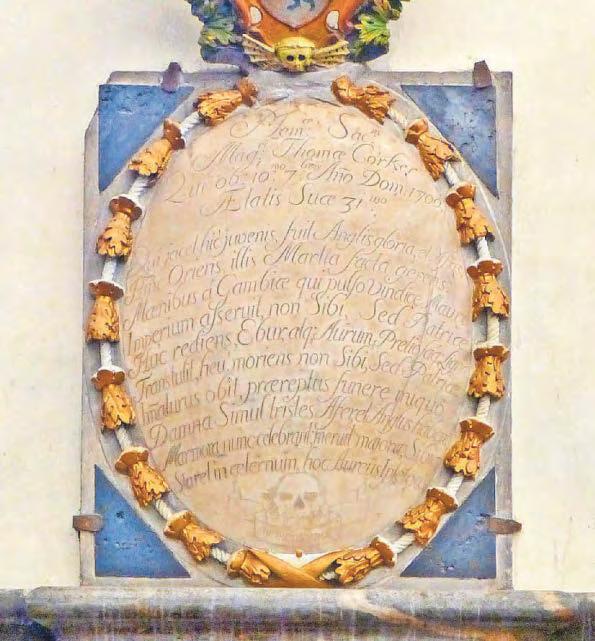 Mem: Sac:
Mag: Thomæ Corker
Qui ob: 10 7 Año Dom: 1700
Ætatis Suœ 31
jacet hic juvenis, fuit Anglis gloria, et
Oriens, illis Martia facta gerens
Mœnibus a Gambiæ qui pulso Vindice Mauro
Imperium asseruit, non Sibi, Sed Patriæ
Huc rediens, Ebur, atq; Aurum, Pretiosa
Transtulit, heu, moriens non Sibi, Sed Patriæ
Imaturus obit, præreptus funere iniquo
Damna Simul tristes Afferet Anglis
Marmora nunc celebrant, meruit majora;
Staret in æternum, hoc Aureus ipse